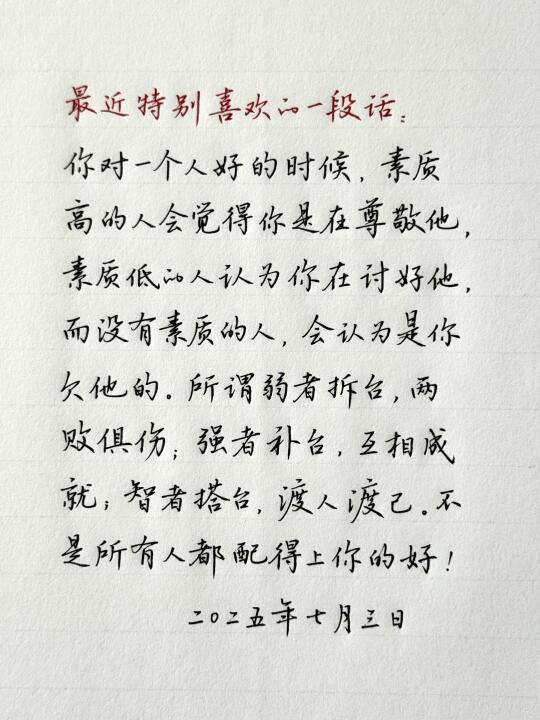 最近特别喜欢的一段话：
你对一个人好的时候，素质
高的人会觉得你是在尊敬他，
素质低的人认为你在讨好他，
而没有素质的人，会认为是你
欠他的。所谓弱者拆台，两
败俱伤；强者补台，互相成
就；智者搭台，渡人渡己。不
是所有人都配得上你的好！
二〇二五年七月三日